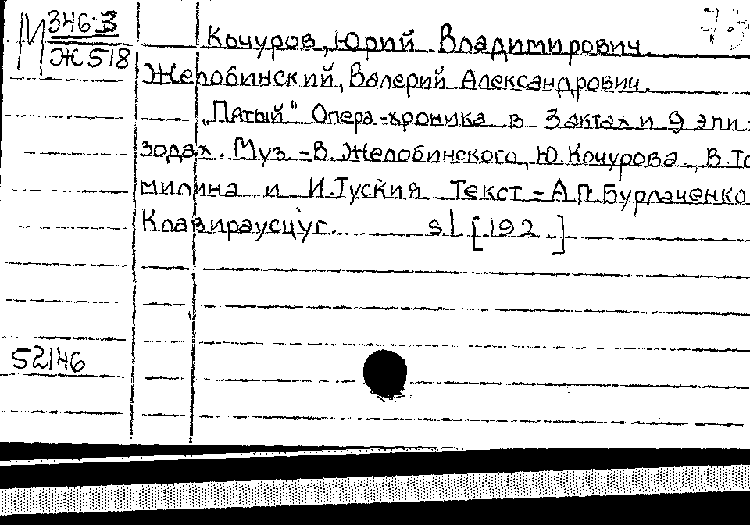 М 346-3
Ж 518
Кочуров, Юрий Владимирович.
Желобинский, Валерий Александрович.
„Пятый" Опера-хроника в 3 актах и 9 эпи-
зодах. Муз.-В. Желобинского, Ю. Кочурова, В. То
милина и И. Туския Текст - А.П. Бурлаченко
Клавираусцуг. sl [192.]
52146